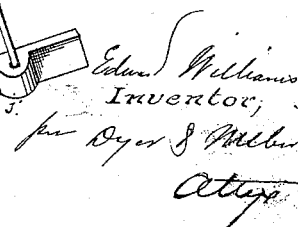 Edward Williams
Inventor,
per Dyer & Wilber
Attys